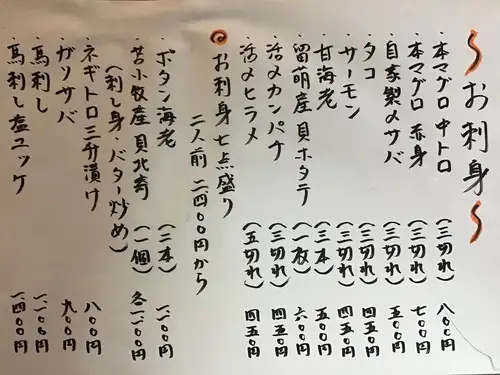 ～お刺身～
・本マグロ 中トロ (三切れ) 八〇〇円
・本マグロ 赤身 (三切れ) 七〇〇円
・自家製〆サバ (三切れ) 五〇〇円
・タコ (三切れ) 四五〇円
・サーモン (三切れ) 四五〇円
・甘海老 (三本) 五〇〇円
・留萌産 貝ホタテ (一枚) 六〇〇円
・活〆カンパチ (三切れ) 四五〇円
・活〆ヒラメ (五切れ) 四五〇円
◎お刺身七点盛り
二人前 二四〇〇円から
・ボタン海老 (二本) 一、一〇〇円
・苫小牧産 貝北寄 (一個) 各一、一〇〇円
(刺し身・バター炒め)
・ネギトロ三升漬け 八〇〇円
・ガリサバ 九〇〇円
・馬刺し 一、二〇〇円
・馬刺し塩ユッケ 一、四〇〇円